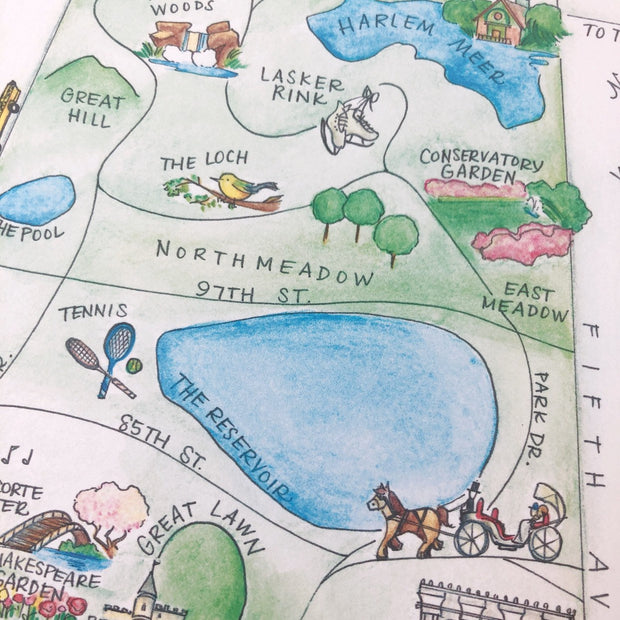 WOODS
HARLEM MEER
LASKER
RINK
GREAT
HILL
THE LOCH
CONSERVATORY
GARDEN
NORTH MEADOW
97TH ST.
EAST
MEADOW
TENNIS
THE RESERVOIR
85TH ST.
PARK DR.
FIFTH AV
GREAT LAWN
TO T
HE POOL
ORTE
TER
HAKESPEARE
GARDEN